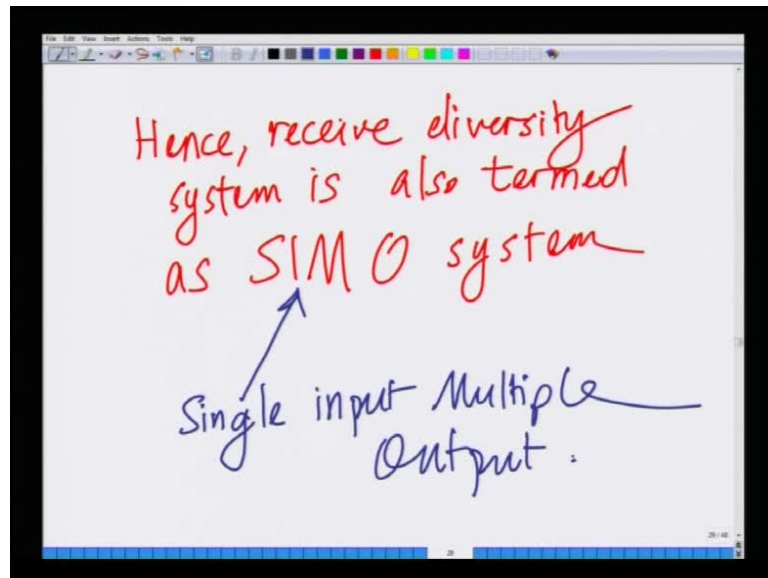 File Edit View Insert Actions Tools Help
Hence, receive diversity
system is also termed
as SIMO system
Single input Multiple
Output.
29